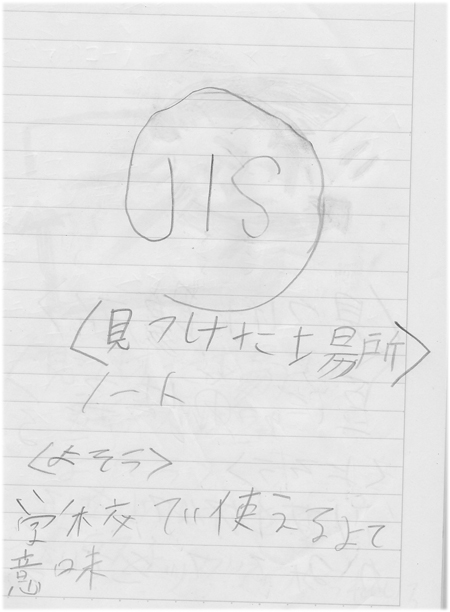 JIS
〈見つけた場所〉
ノート
〈よそう〉
学校で使えるよて
意味